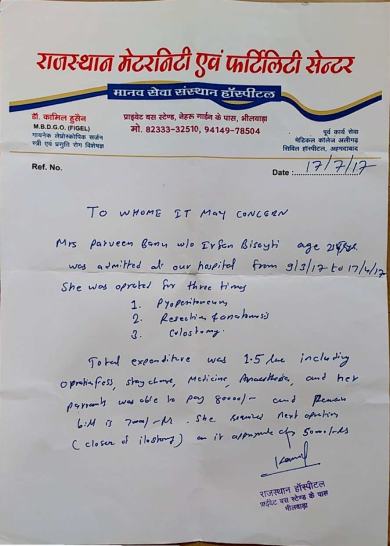 राजस्थान मेटरनिटी एवं फर्टिलिटी सेन्टर
मानव सेवा संस्थान हॉस्पीटल
डॉ. कामिल हुसैन
M.B.D.G.O. (FIGEL)
गायनेक लेप्रोस्कोपिक सर्जन
स्त्री एवं प्रसूति रोग विशेषज्ञ
प्राइवेट बस स्टेण्ड, नेहरू गार्डन के पास, भीलवाड़ा
मो. 82333-32510, 94149-78504
पूर्व कार्य सेवा
मेडिकल कॉलेज अलीगढ़
सिविल हॉस्पीटल, अहमदाबाद
Ref. No.
Date : 17/7/17
TO WHOME IT MAY CONCERN
Mrs Parveen Banu w/o Irfan age
was admitted at our hospital from 9/3/17 to 17/4/17
She was oprated for three times
1. Pyoperitoneum
2. Resection
3. Colostomy.
Total expenditure was 1.5 including
stay, Medicine, Anaesthesia, and her
was able to pay 80000/- and
bill is . She next opration
( of ) 50000/-
राजस्थान हॉस्पीटल
प्राईवेट बस स्टेण्ड के पास
भीलवाड़ा